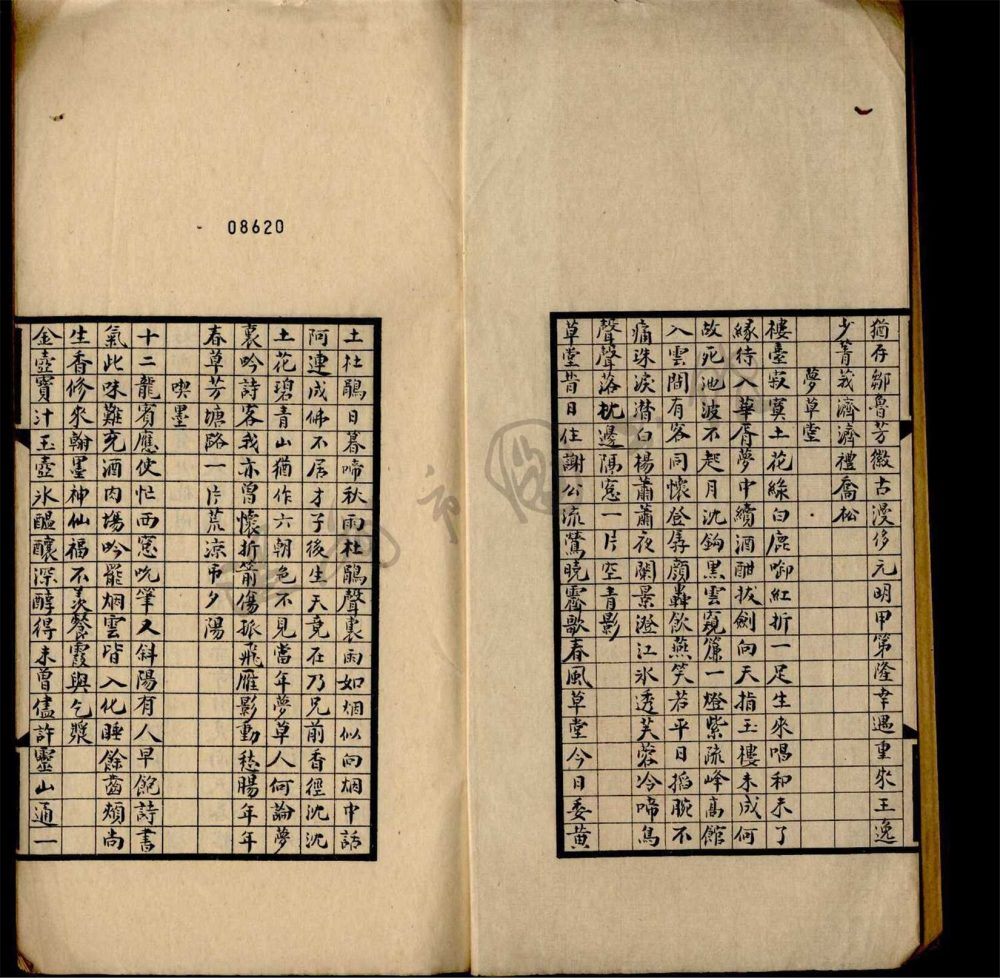 猶存鄒魯芳徽古漫侈元明甲第隆幸遇重來王逸
少菁莪濟濟禮喬松
夢草堂
樓臺寂寞土花綠白鹿啣紅折一足生來唱和未了
緣待入華胥夢中續酒酣拔劍向天指玉樓未成何
故死池波不起月沈鈎黑雲窺簾一燈紫疏峰高館
入雲間有客同懷登孱顏轟飲燕笑若平日搯腕不
痛珠淚潸白楊蕭蕭夜闌景澄江氷透芙蓉冷啼鳥
聲聲落枕邊隔窓一片空青影
草堂昔日住謝公流鶯曉囀歌春風草堂今日委黃
土杜鵑日暮啼秋雨杜鵑聲裏雨如烟似向烟中話
阿連成佛不居才子後生天竟在乃兄前香徑沈沈
土花碧青山猶作六朝色不見當年夢草人何論夢
裏吟詩客我亦曾懷折箭傷孤飛雁影動愁腸年年
春草芳塘路一片荒涼弔夕陽
喫墨
十二龍賓應使忙雨窓吮筆又斜陽有人早飽詩書
氣此味難充酒肉場吟罷烟雲皆入化睡餘齒頰尚
生香修來翰墨神仙福不羨餐霞與乞漿
金壺寶汁玉壺氷醞釀深醇得未曾儘許靈山通一
08620